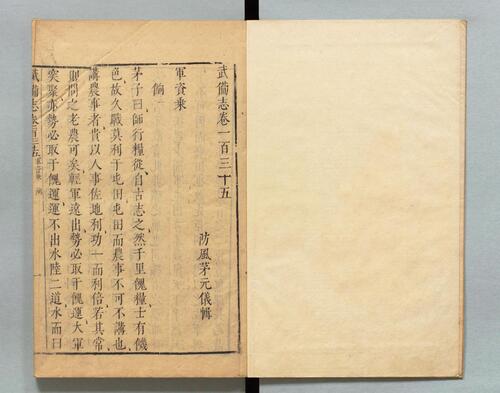 武備志卷一百三十五
防風茅元儀輯
軍資乘
餉一
茅子曰師行糧從自古志之然千里餽糧士有饑
色故久戰莫利于屯田屯田而農事不可不講也
講農事者貴以人事佐地利功一而利倍若其常
則問之老農可矣輕軍遠出勢必取于餽運大軍
突聚亦勢必取于餽運運不出水陸二道水而曰
武備志卷百三五
軍資乘
餉
一